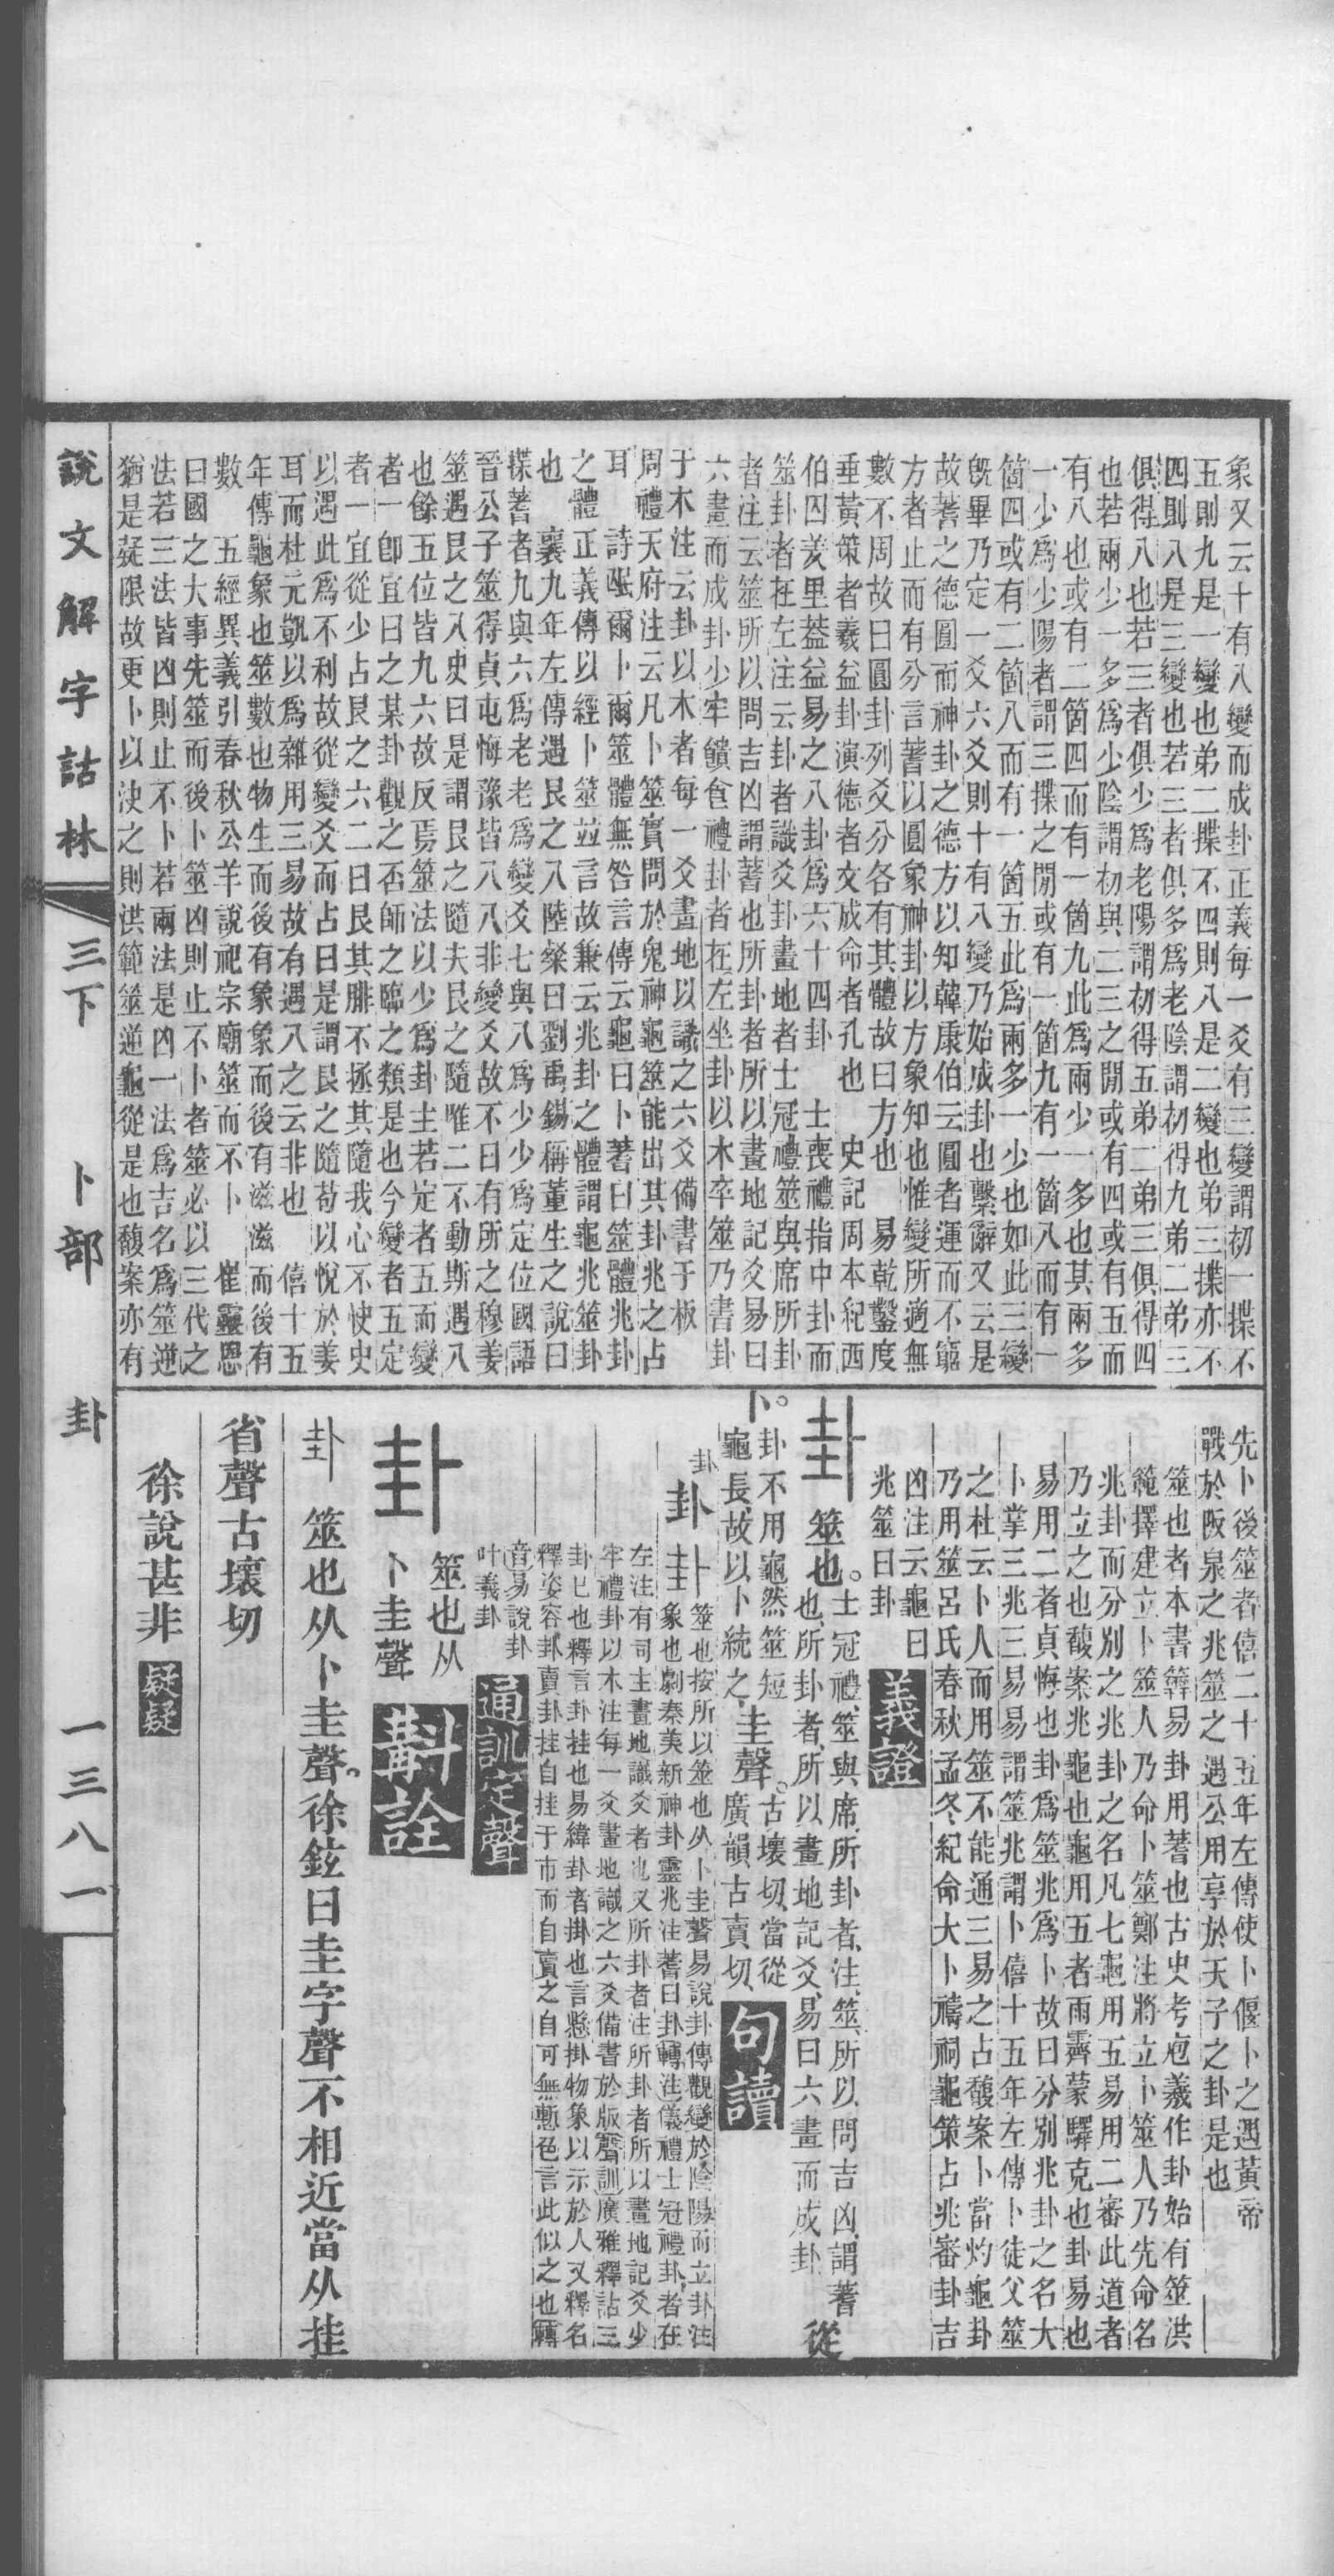 象又云十有八變而成卦正義每一爻有三變謂初一揲不
五則九是一變也弟二揲不四則八是二變也弟三揲亦不
四則八是三變也若三者俱多爲老陰謂初得九弟二弟三
俱得八也若三者俱少爲老陽謂初得五弟二弟三俱得四
也若兩少一多爲少陰謂初與二三之閒或有四或有五而
有八也或有二箇四而有一箇九此爲兩少一多也其兩多
一少爲少陽者謂三揲之閒或有一箇九有一箇八而有一
箇四或有二箇八而有一箇五此爲兩多一少也如此三變
旣畢乃定一爻六爻則十有八變乃始成卦也繫辭又云是
故蓍之德圓而神卦之德方以知韓康伯云圓者運而不窮
方者止而有分言蓍以圓象神卦以方象知也惟變所適無
數不周故曰圓卦列爻分各有其體故曰方也　易乾鑿度
垂黃策者羲益卦演德者文成命者孔也　史記周本紀西
伯囚羑里葢益易之八卦爲六十四卦　士喪禮指中卦而
筮卦者在左注云卦者識爻卦畫地者士冠禮筮與席所卦
者注云筮所以問吉凶謂蓍也所卦者所以畫地記爻易曰
六畫而成卦少牢饋食禮卦者在左坐卦以木卒筮乃書卦
于木注云卦以木者每一爻畫地以識之六爻備書于板
周禮天府注云凡卜筮實問於鬼神龜筮能出其卦兆之占
耳　詩氓爾卜爾筮體無咎言傳云龜曰卜蓍曰筮體兆卦
之體正義傳以經卜筮竝言故兼云兆卦之體謂龜兆筮卦
也　襄九年左傳遇艮之八陸粲曰劉禹錫稱董生之說曰
揲蓍者九與六爲老老爲變爻七與八爲少少爲定位國語
晉公子筮得貞屯悔豫皆八八非變爻故不曰有所之穆姜
筮遇艮之八史曰是謂艮之隨夫艮之隨唯二不動斯遇八
也餘五位皆九六故反焉筮法以少爲卦主若定者五而變
者一卽宜曰之某卦觀之否師之臨之類是也今變者五定
者一宜從少占艮之六二曰艮其腓不拯其隨我心不快史
以遇此爲不利故從變爻而占曰是謂艮之隨苟以悅於姜
耳而杜元凱以爲雜用三易故有遇八之云非也　僖十五
年傳龜象也筮數也物生而後有象象而後有滋滋而後有
數　五經異義引春秋公羊說祀宗廟筮而不卜　崔靈恩
曰國之大事先筮而後卜筮凶則止不卜者筮必以三代之
法若三法皆凶則止不卜若兩法是凶一法爲吉名爲筮逆
猶是疑限故更卜以決之則洪範筮逆龜從是也馥案亦有
先卜後筮者僖二十五年左傳使卜偃卜之遇黃帝
戰於阪泉之兆筮之遇公用享於天子之卦是也
筮也者本書簭易卦用蓍也古史考庖羲作卦始有筮洪
範擇建立卜筮人乃命卜筮鄭注將立卜筮人乃先命名
兆卦而分別之兆卦之名凡七龜用五易用二審此道者
乃立之也馥案兆龜也龜用五者雨霽蒙驛克也卦易也
易用二者貞悔也卦爲筮兆爲卜故曰分別兆卦之名大
卜掌三兆三易易謂筮兆謂卜僖十五年左傳卜徒父筮
之杜云卜人而用筮不能通三易之占馥案卜當灼龜卦
乃用筮呂氏春秋孟冬紀命大卜禱祠龜策占兆審卦吉
凶注云龜曰
兆筮曰卦
義證
卦　筮也。士冠禮、筮與席、所卦者、注、筮、所以問吉凶、謂蓍
也、所卦者、所以畫地記爻、易曰六畫而成卦、從
卜。卦不用龜、然筮短
龜長、故以卜統之、圭聲。古壞切、當從
廣韻古賣切、
句讀
卦　卦　卦　筮也按所以筮也从卜圭聲易說卦傳觀變於陰陽而立卦注
象也劇秦美新神卦靈兆注蓍曰卦轉注儀禮士冠禮卦者在
左注有司主畫地識爻者也又所卦者注所卦者所以畫地記爻少
牢禮卦以木注每一爻畫地識之六爻備書於版聲訓廣雅釋詁三
卦匕也釋言卦挂也易緯卦者掛也言懸掛物象以示於人又釋名
釋姿容卦賣卦挂自挂于市而自賣之自可無慙色言此似之也轉
音易說卦
叶義卦
通訓定聲
卦　筮也从
卜圭聲
斠詮
卦　筮也从卜圭聲。徐鉉曰圭字聲不相近當从挂
省聲古壞切
徐說甚非
疑疑
說文解字詁林　三下　卜部　卦　一三八一